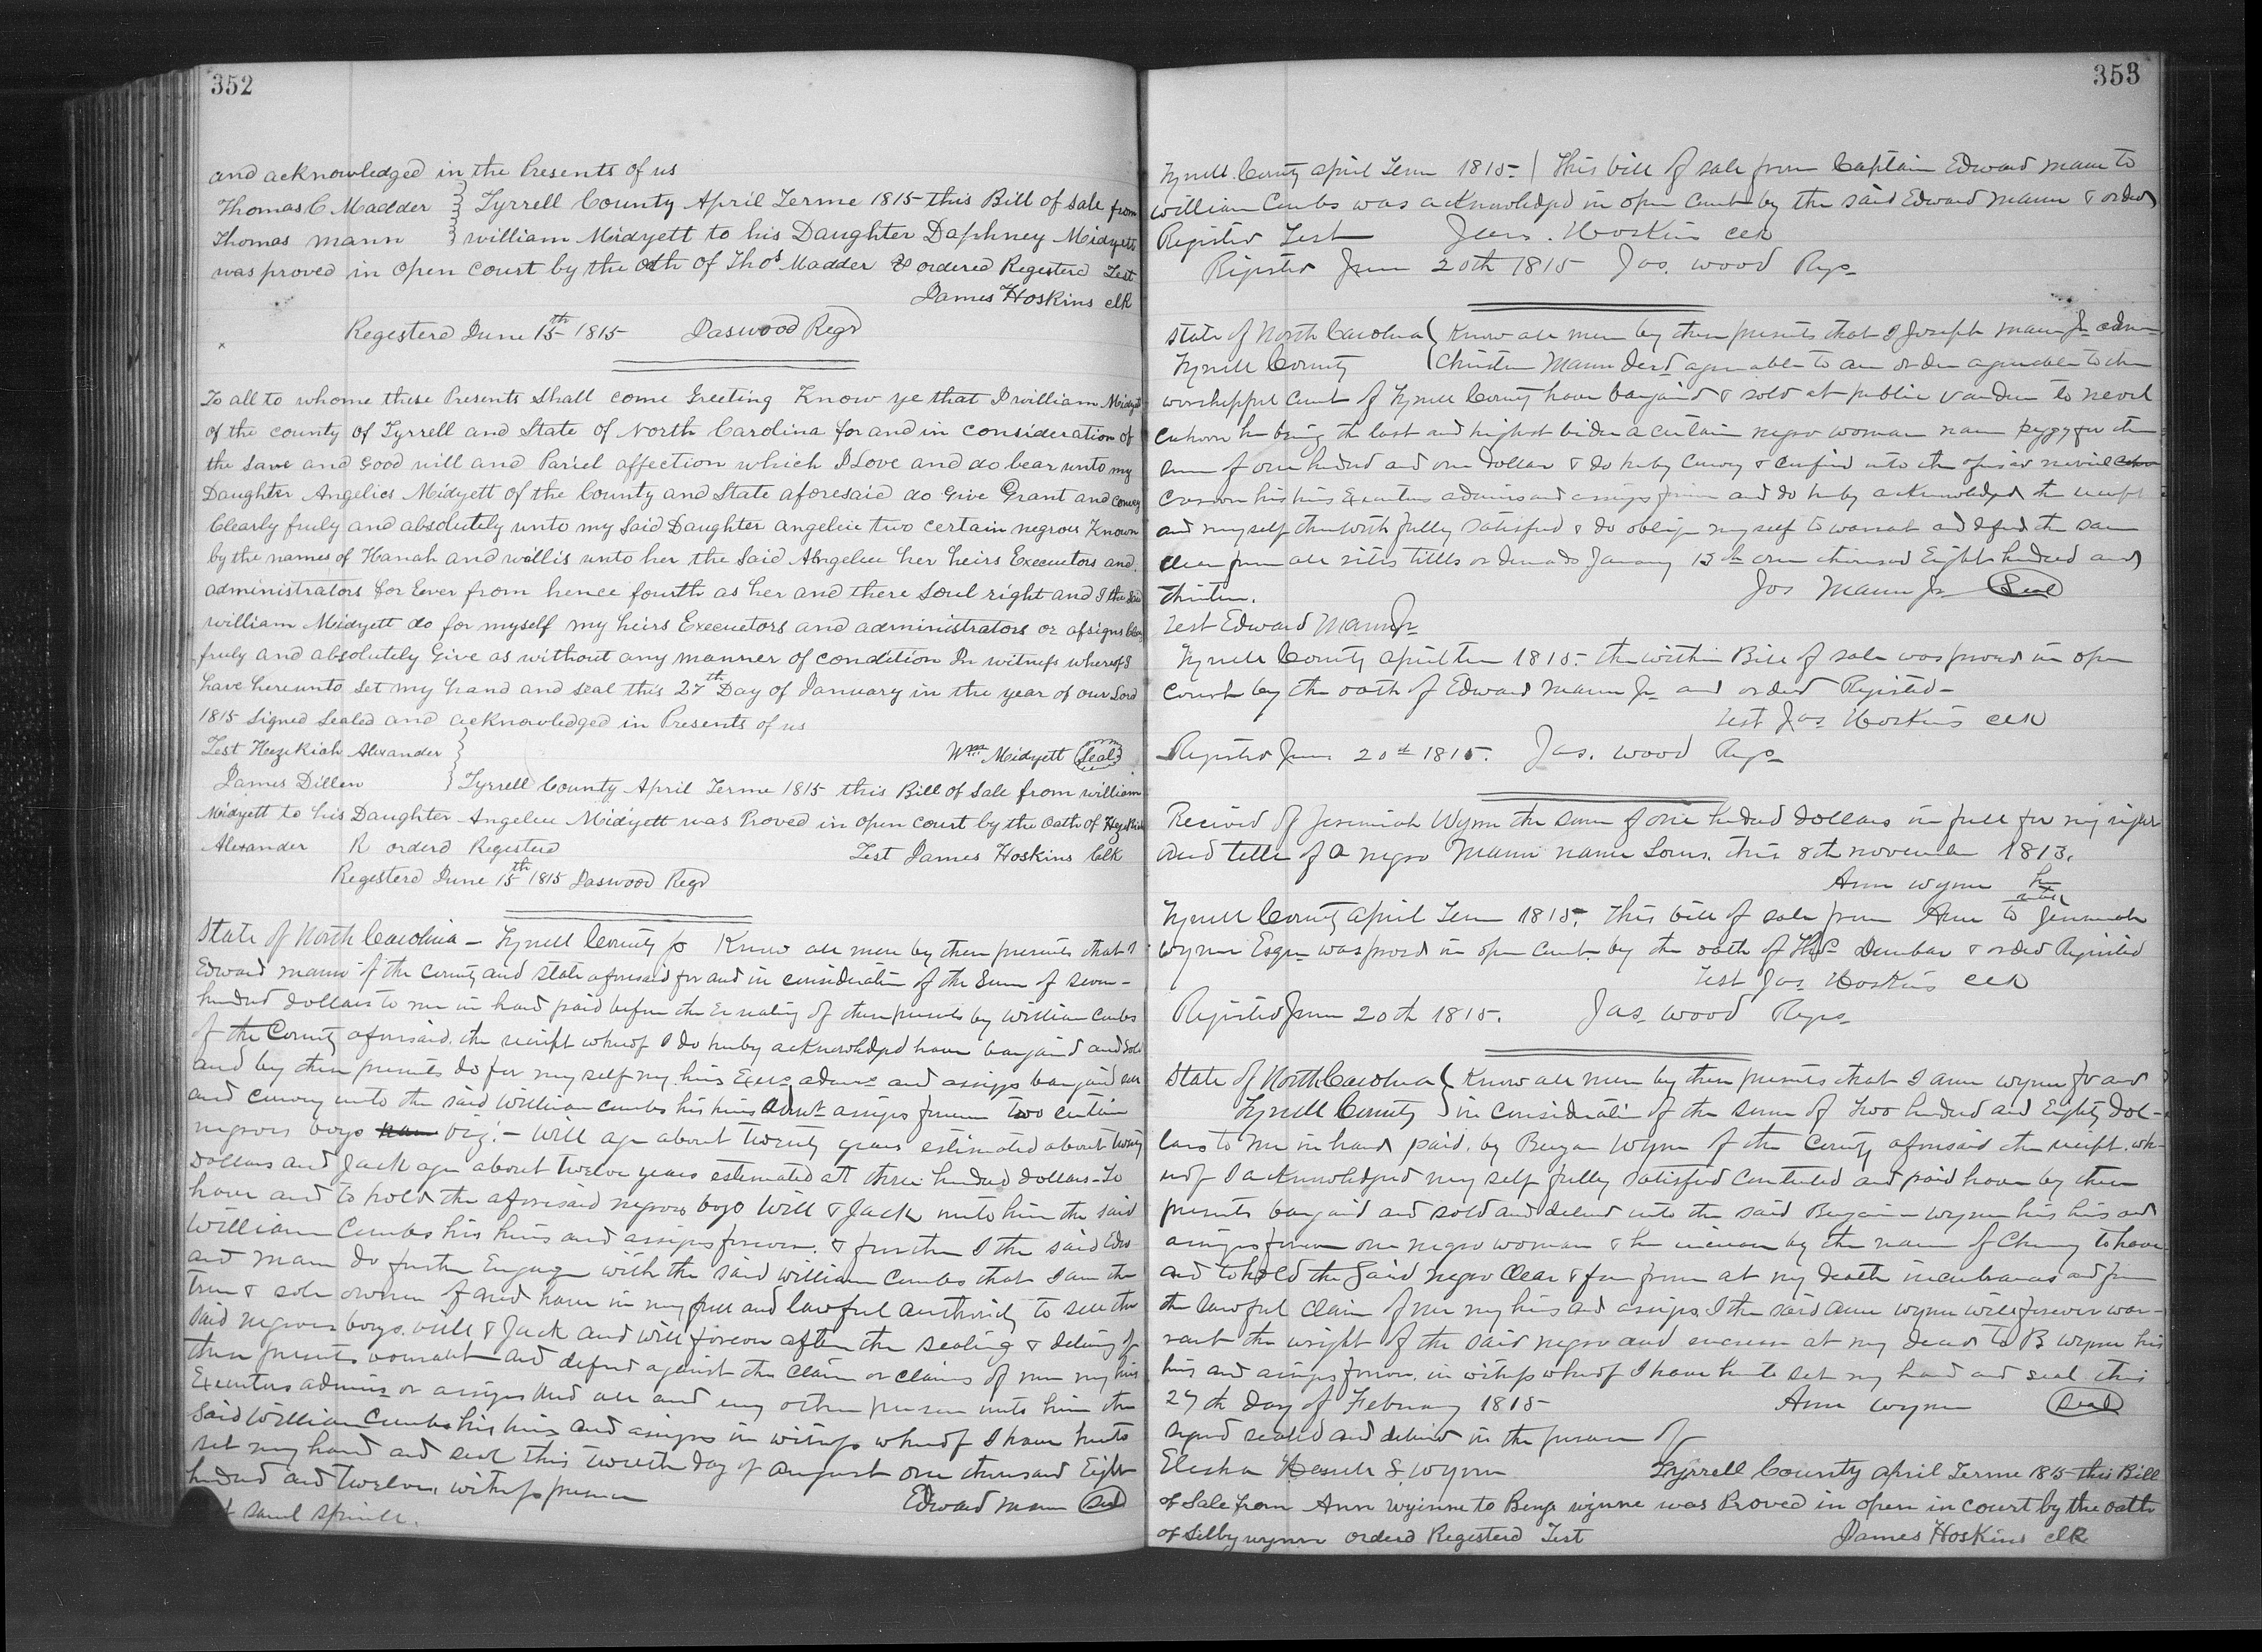 352
and acknowledged in the Presents of us
Thomas C Madder } Tyrrell County April Terme 1815 this Bill of sale from
Thomas Mann } william Midyett to his Daughter Daphney Midyett
was proved in open court by the oath of Thos Madder & ordered Regesterd Test
James Hoskins clk
Regesterd June 15th 1815 Jaswood Regr
To all to whome these Presents shall come Greeting Know ye that I william Midyett
of the county of Tyrrell and State of North Carolina for and in consideration of
the Love and Good will and Pariel affection which I Love and do bear unto my
Daughter Angelies Midyett of the County and State aforesaid do Give Grant and convey
Clearly fruly and absolutely unto my Said Daughter angelice two certain negroes Known
by the names of Hanah and willis unto her the Said Angelice her heirs Executors and
administrators for Ever from hence fourth as her and there Soul right and I the Said
william Midyett do for myself my heirs Executors and administrators or assigns Clearly
fruly and absolutely Give as without any manner of condition In witness whereof I
have hereunto set my hand and seal this 27th Day of January in the year of our Lord
1815 Signed Sealed and acknowledged in Presents of us
Test Hezekiah Alexander } Wm Midyett (Seal)
James Dillen } Tyrrell County April Terme 1815 this Bill of Sale from william
Midyett to his Daughter Angelice Midyett was Proved in open court by the oath of Hezekiah
Alexander R orderd Registerd Test James Hoskins Clk
Regesterd June 15th 1815 Jaswood Regr
State of North Carolina - Tyrrell County Know all men by these presents that I
Edward mann of the County and state aforesaid for and in consideration of the Sum of seven-
hundred dollars to me in hand paid before the Ensealing of these presents by William Combs
of the County aforesaid, the receipt whereof I do hereby acknowledged have bargaind and Sold
and by these presents do for my self my heirs Exers admrs and assigns bargaind sell
and convey unto the said William Combs his heirs admrs assigns forever two certain
negroes boys viz: - Will age about twenty years estimated about twenty
Dollars and Jack age about twelve years estimated att three hundred dollars - To
have and to hold the aforesaid negroes boys Will & Jack unto him the said
William Combs his heirs and assigns forever. & further I the said Edw-
ard Mann do further Engage with the said William Combs that I am the
true & sole owner of and have in my full and lawful authority to sell the
said negroes boys will & Jack and will forever after the sealing & delivery of
these presents warrant and defend against the claim or claims of me my heirs
Executors admrs or assigns And all and every other person unto him the
Said William Combs his heirs and assigns in witness whereof I have hereto
set my hand and seal this twelth day of august one thousand Eight
hundred and twelve, witness present Edward Mann (Seal)
saml Spruill.
353
Tyrrell County april Term 1815 - } This bill of sale from Captain Edward Mann to
William Combs was acknowledged in open Court by the said Edward Mann & ordered
Registered Test James. Hoskins clk
Registered June 20th 1815 Jas. Wood Regs
State of North Carolina { Know all men by these presents that I Joseph Mann Jr adm-
Tyrrell County { Christen Mann Decd agreeable to an order agreeable to the
worshipful Court of Tyrrell County have bargaind & sold at public vandue to nevil
he being the last and highest bider a certain negro woman name Peggy for the
sum of one hundred and one dollar & do hereby Convey & Confirm unto the aforesaid nevil
his heirs Executors admins and assigns forever and do hereby acknowledged the receipt
and myself therewith fully Satisfied & do oblige myself to warrant and defend the same
clear from all rites titles or demands January 15th one thousand Eight hundred and
thirteen. Jos Mann Jr (Seal)
Test Edward Mann Jr
Tyrrell County april term 1815. the within Bill of sale was proved in open
court by the oath of Edward Mann Jr and orderd Registerd -
Test Jas Hoskins clk
Registerd June 20th 1815. Jas. Wood Regs
Recived of Jeremiah Wynn the sum of one hundred Dollars in full for my right
and titlle of a negro Mann name Lewis. this 8th november 1813.
Ann Wynn her mark
Tyrrell County April Term 1815. This bill of sale from Ann to Jeremiah
Wynn Esqr was proved in open Court by the oath of Thos Dunbar & orderd Registerd
Test Jas Hoskins clk
Registerd June 20th 1815. Jas Wood Regs
State of North Carolina { Know all men by these presents that I Ann Wynn for and
Tyrrell County } in Consideration of the sum of Two hundred and Eighty Dol-
lars to me in hand paid by Benjn Wynn of the County aforesaid the receipt wh-
reof I acknowledged my self fully satisfied Contented and paid have by these
presents bargaind and sold and deliverd unto the said Benjamin Wynn his heirs and
assigns forever one negro woman & her increase by the name of Cherry to have
and to hold the Said negro Clear & free from at my death incumbrances and from
the lawful claim of me my heirs and assigns. I the said Ann Wynn will forever war-
rant the wright of the said negro and encrease at my dead to B Wynn his
heirs and assigns forever. in witness whereof I have hereto set my hand and seal this
27th Day of February 1815 Ann Wynn (Seal)
signed sealed and deliverd in the presence of
Elesha S Wynn Tyrrell County April Terme 1815 this Bill
of Sale from Ann Wyinne to Benja wynne was Proved in open in court by the oath
of Selby wynn orderd Regesterd Test James Hoskins clk